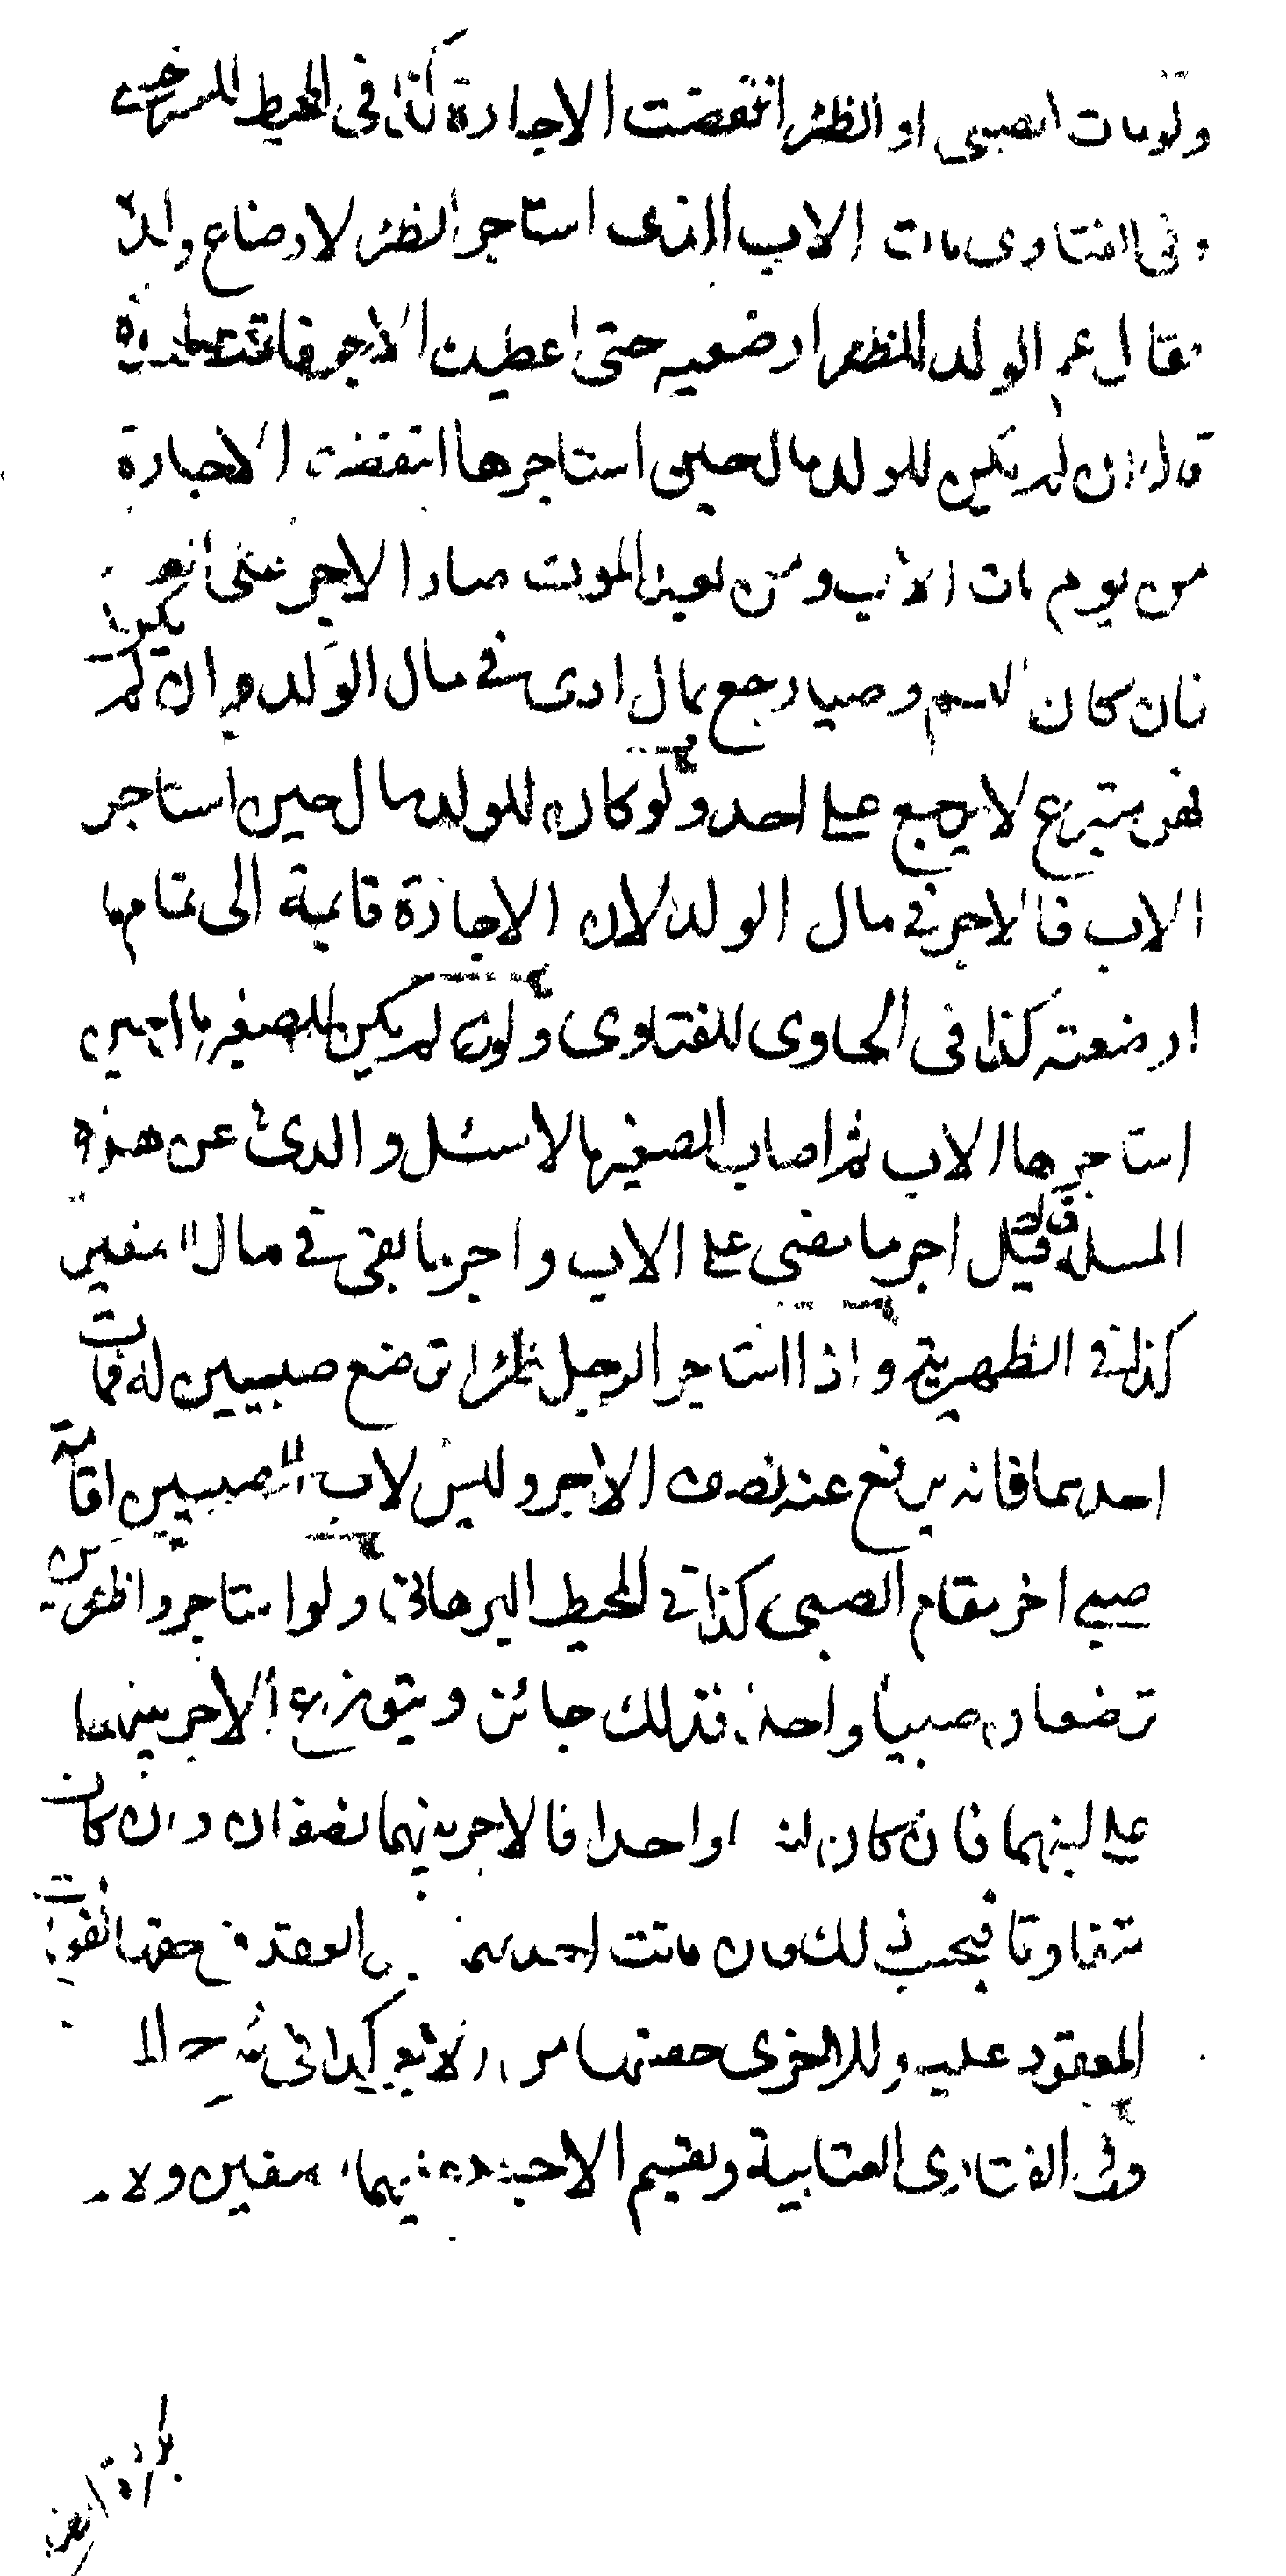 ولو مات الصبى او الظئر انتقضت الاجارة كذا فى المحيط للسرخسى
وفى الفتاوى مات الاب الذى استاجر الظئر لارضاع ولده
فقال عم الولد للظئر ارضعيه حتى اعطيك الاجر فارضعته
قال ان لم يكن للولد مال حين استاجرها انتقضت الاجارة
من يوم مات الاب ومن بعد الموت صار الاجر على العم
فان كان العم وصيا رجع بمال ادى فى مال الولد وان لم يكن
فهو متبرع لا يرجع على احد ولو كان للولد مال حين استاجر
الاب فالاجر فى مال الولد لان الاجارة قايمة الى تمام ما
ارضعته كذا فى الحاوى للفتاوى ولو لم يكن للصغير مال حين
استاجرها الاب ثم اصاب الصغير مالا سئل والدى عن هذه
المسلة فقال قيل اجر ما مضى على الاب واجر ما بقى فى مال الصغير
كذا فى الظهيرية واذا استاجر الرجل ظئرا ترضع صبيين له فمات
احدهما فانه يرفع عنه نصف الاجر وليس لاب الصبيين اقامة
صبى اخر مقام الصبى كذا فى المحيط البرهانى ولو استاجروا ظئرين
ترضعان صبيا واحدا فذلك جائز ويتوزع الاجر بينهما
على لبنهما فان كان واحدا فالاجر بينهما نصفان وان كان
متفاوتا فبحسب ذلك فان ماتت احدهما العقد فى حقها لفوات
المعقود عليه وللاخرى حصتها من كذا فى
وفى الفتاوى العتابية ويقسم الاجر بينهما نصفين ولا